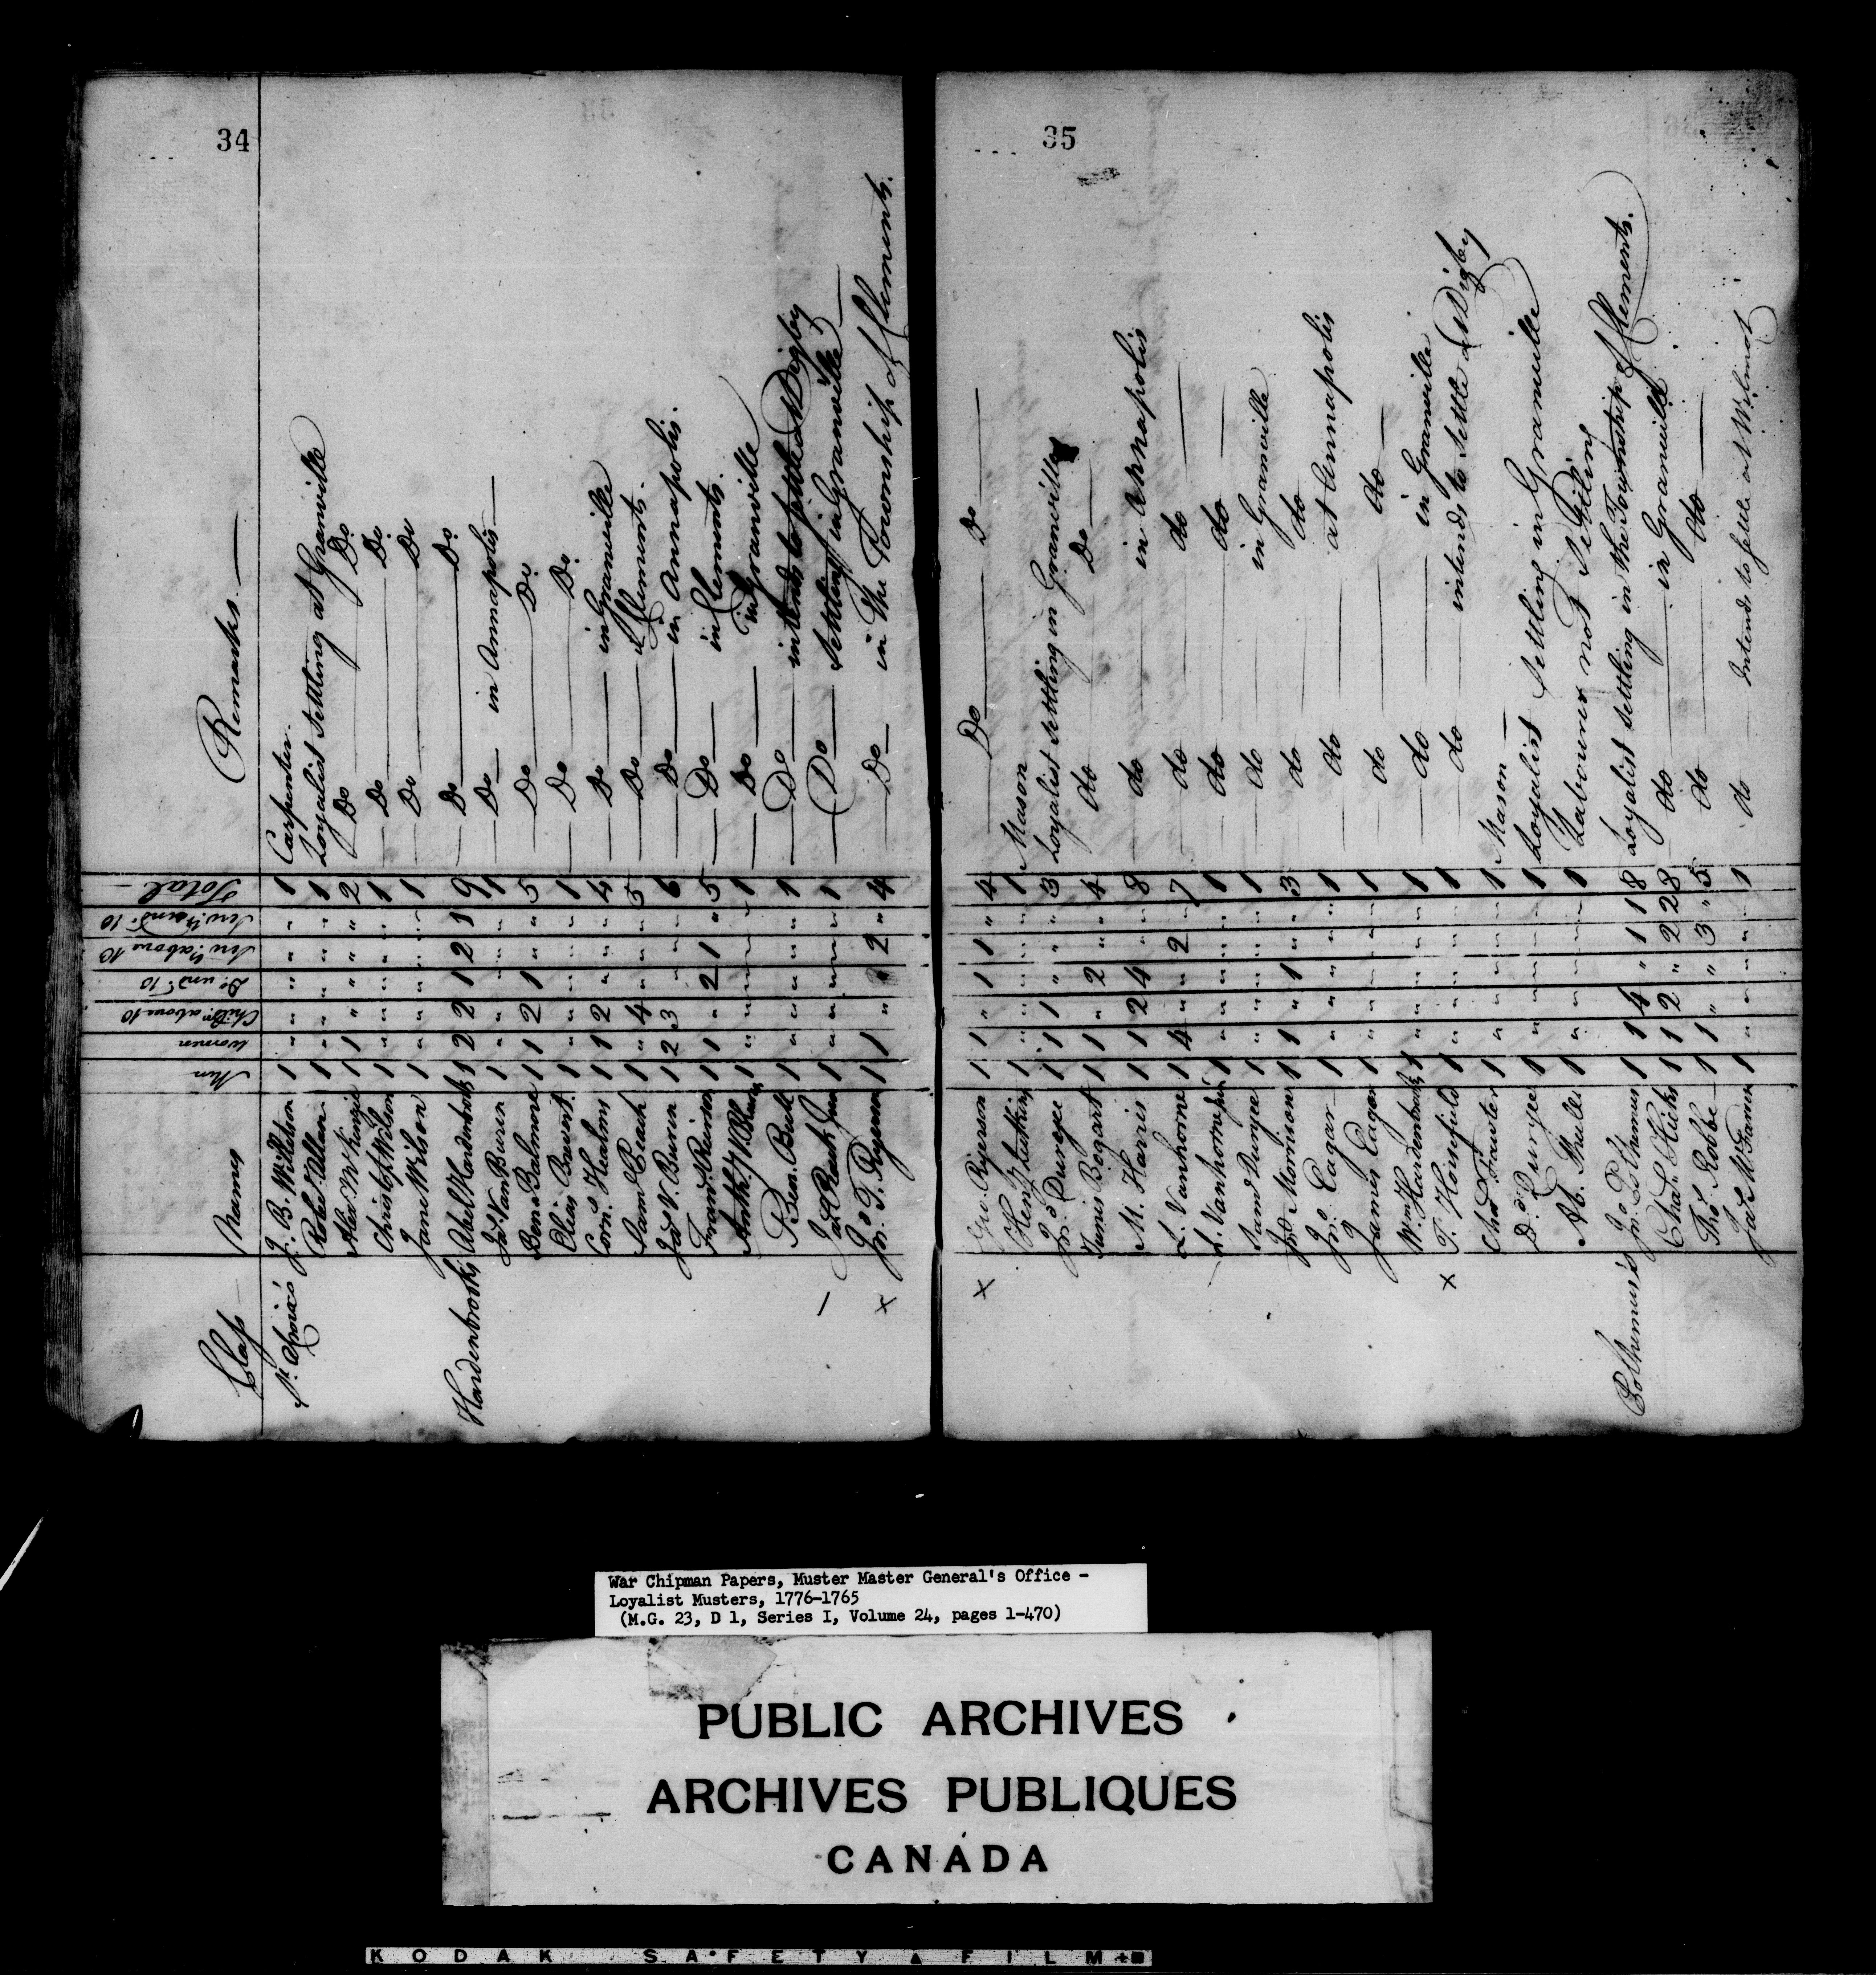 34
Class Names Men Women Childn above 10 Do. undr. 10 Servts above 10 Servts undr 10 Total Remarks
J. B. Willeton 1 " " " " " 1 Carpenter
Robt. Allan 1 " " " " " 1 Loyalist Settling at Granville
Alex McKinzie 1 1 " " " " 2 Do Do
Christr. Wilson 1 " " " " " 1 Do Do
Jane Wilson 1 " " " " " 1 Do Do
Hardenbrooks Abel Hardenbrook 1 2 2 1 2 1 9 Do Do
Js. Van Buren 1 " " " " " 1 Do in Annapolis
Ben: Balmore 1 1 2 1 " " 5 Do Do
Elias Bawert 1 " " " " " 1 Do Do
Corn: Healms 1 1 2 " " " 4 Do in Granville
Saml. Peach 1 " 4 " " " 5 Do Clements.
Jas V. Buren 1 2 3 " " " 6 Do in Annapolis.
Frans. Ruerson 1 1 " 2 1 " 5 Do in Clements.
Anthy. V. Blum 1 " " " " " 1 Do in Granville
Ben. Bull 1 " " " " " 1 Do intends to settle at Digby
Jas Peach Junr 1 " " " " " 1 Do Settling in Granville
x Jno. T. Ryerson 1 1 " " 2 " 4 Do in the Township of Clements.
35
x Geo. Ryerson 1 1 " 1 1 " 4 Do Do
Heny. 1 " " " " " 1 Mason
Jno. Duryee 1 1 1 " " " 3 Loyalist settling in Granville
Tunis Bogart 1 1 " 2 " " 4 do Do
M. Harris 1 1 2 4 " " 8 do in Annapolis
L. Vanhorne 1 4 " " 2 " 7 do do
L. Vanhorne Junr 1 " " " " " 1 do do
Saml Duryee 1 " " " " " 1 do in Granville
Jno Morrison 1 1 " 1 " " 3 do do
Jno. Eagar 1 " " " " " 1 do at Annapolis
James Eagar 1 " " " " " 1 do do
Wm. Hardenbrook 1 " " " " " 1 do in Granville
x T. Horsfield 1 " " " " " 1 do intends to Settle at Digby
Chas Fawster 1 " " " " " 1 Mason
D. Duryee 1 " " " " " 1 Loyalist Settling in Granville
Ab. 1 " " " " " 1 Labourer not Settling
Polhemus's Jno. Polhemus 1 1 4 " 1 1 8 Loyalist settling in the Township of Clements.
Chas. Hicks 1 1 2 " 2 2 8 do in Granville
Tho. Robbe 1 1 " " 3 " 5 do do
Jas McFarren 1 " " " " " 1 do Intends to settle at Wilmot
War Chipman Papers, Muster Master General's Office -
Loyalist Musters, 1776-1765
(M.G. 23, D 1, Series I, Volume 24, pages 1-470)
PUBLIC ARCHIVES
ARCHIVES PUBLIQUES
CANADA
KODAK SAFETY FILM